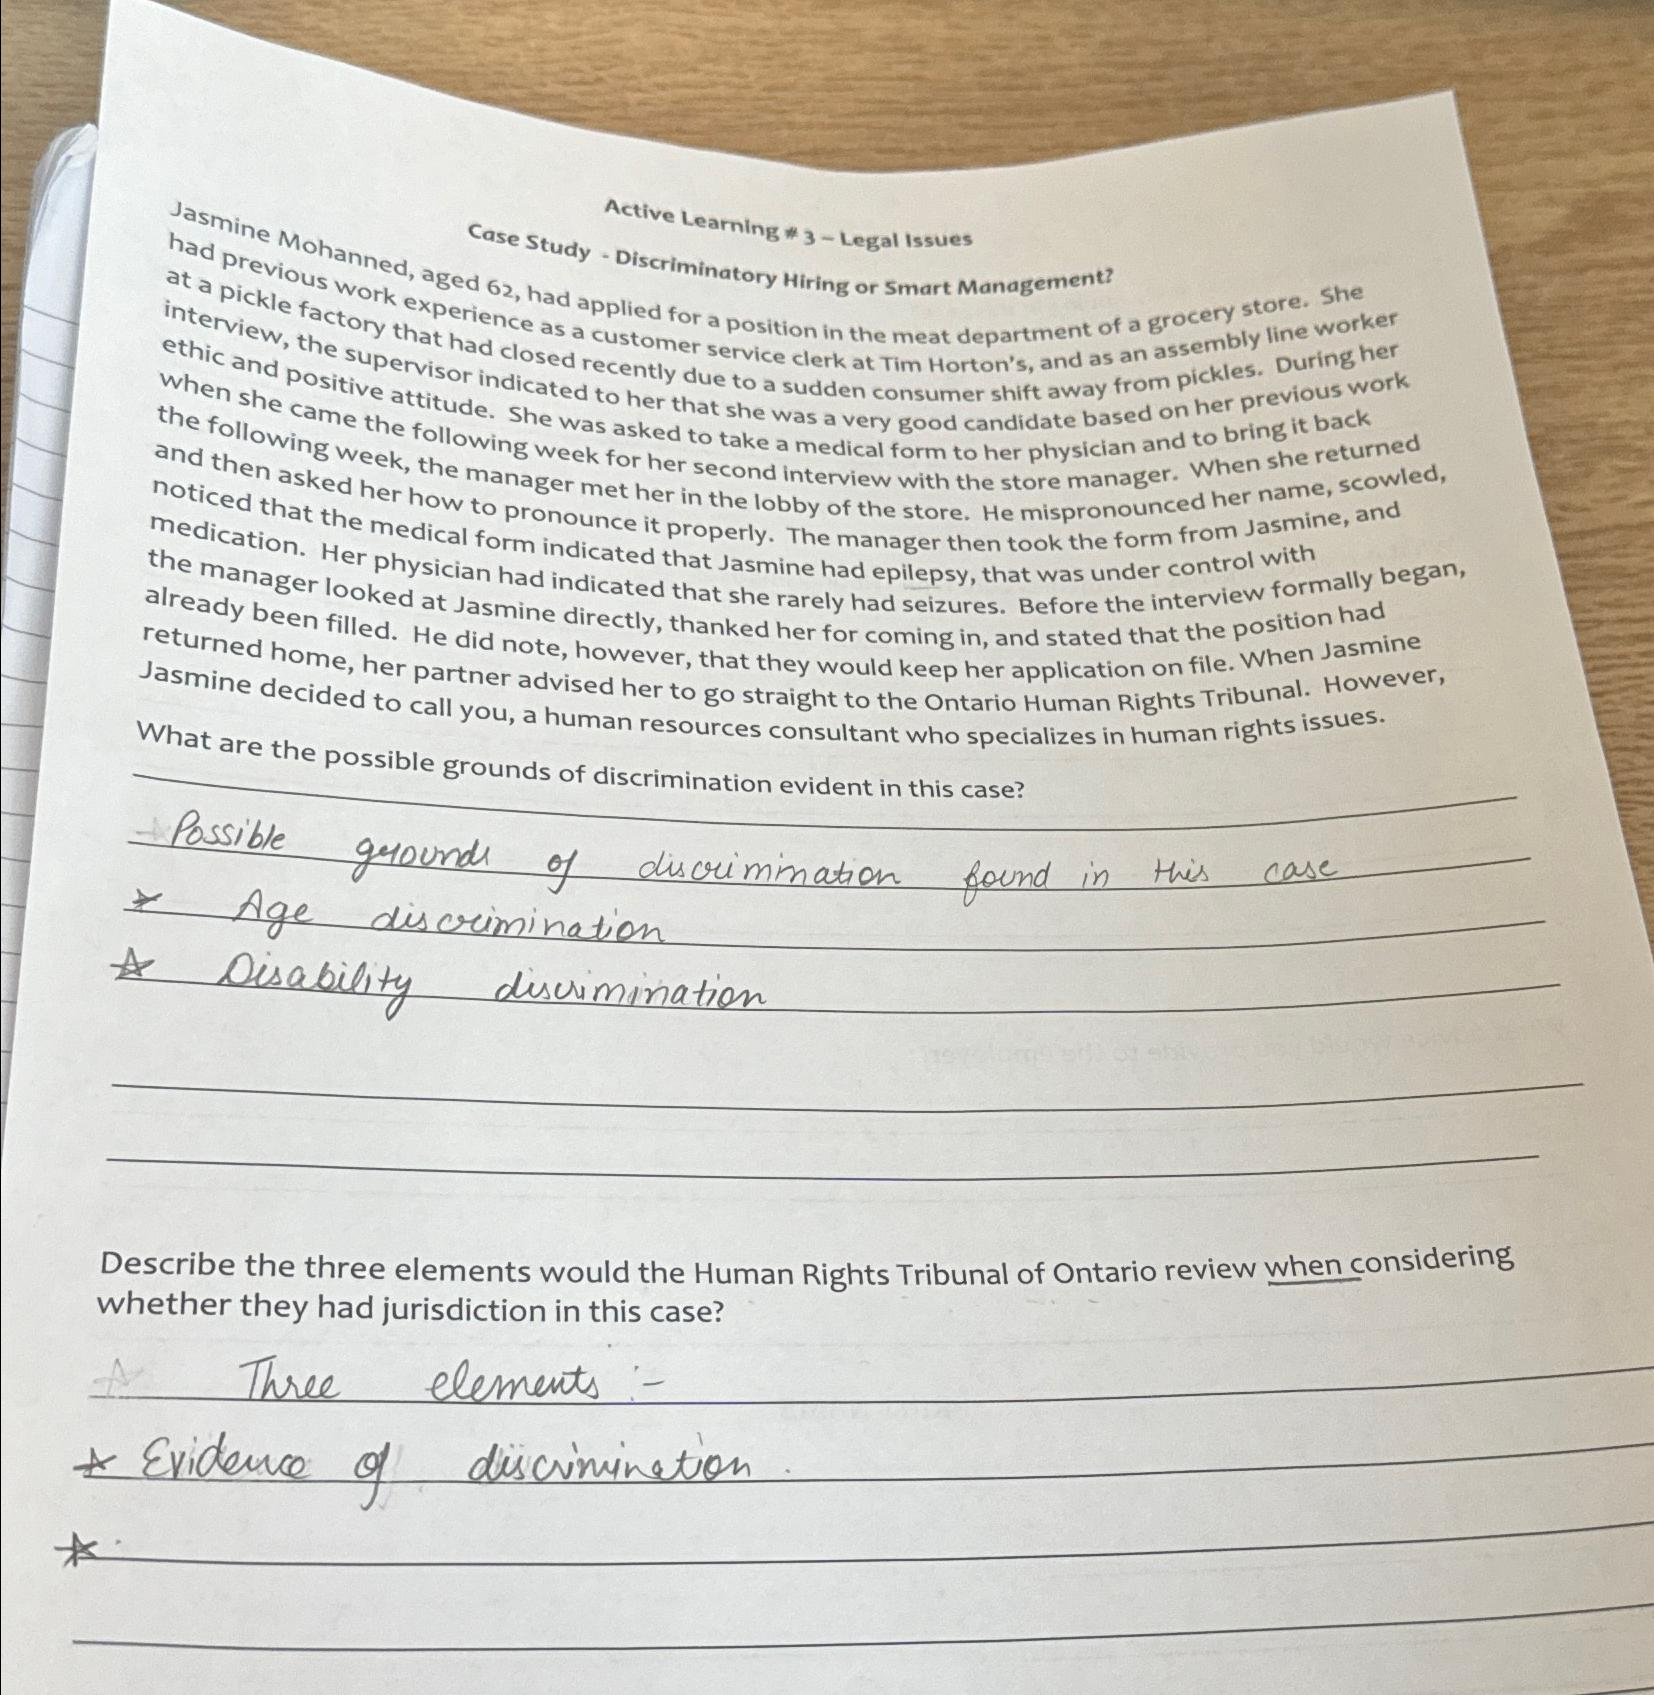 Active Learning # 3 – Legal Issues
Case Study - Discriminatory Hiring or Smart Management?
Jasmine Mohanned, aged 62, had applied for a position in the meat department of a grocery store. She
had previous work experience as a customer service clerk at Tim Horton's, and as an assembly line worker
at a pickle factory that had closed recently due to a sudden consumer shift away from pickles. During her
interview, the supervisor indicated to her that she was a very good candidate based on her previous work
ethic and positive attitude. She was asked to take a medical form to her physician and to bring it back
when she came the following week for her second interview with the store manager. When she returned
the following week, the manager met her in the lobby of the store. He mispronounced her name, scowled,
and then asked her how to pronounce it properly. The manager then took the form from Jasmine, and
noticed that the medical form indicated that Jasmine had epilepsy, that was under control with
medication. Her physician had indicated that she rarely had seizures. Before the interview formally began,
the manager looked at Jasmine directly, thanked her for coming in, and stated that the position had
already been filled. He did note, however, that they would keep her application on file. When Jasmine
returned home, her partner advised her to go straight to the Ontario Human Rights Tribunal. However,
Jasmine decided to call you, a human resources consultant who specializes in human rights issues.
What are the possible grounds of discrimination evident in this case?
Possible grounds of discrimination found in this case
Age discrimination
Disability discrimination
Describe the three elements would the Human Rights Tribunal of Ontario review when considering
whether they had jurisdiction in this case?
Three elements :-
Evidence of discrimination.